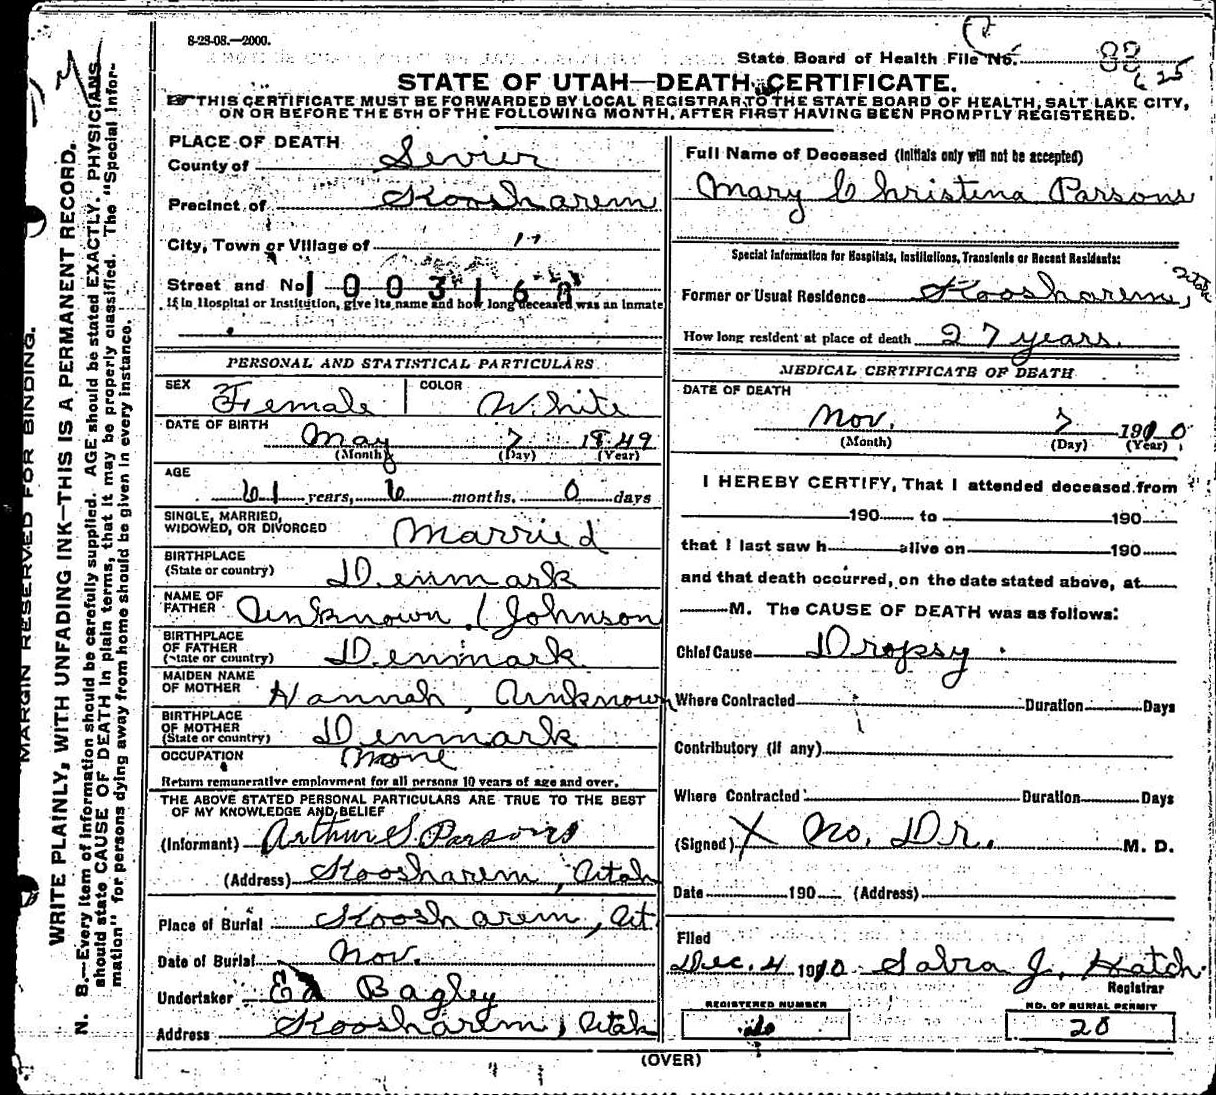 8-23-08.—2000.
State Board of Health File No. 82
25
STATE OF UTAH—DEATH CERTIFICATE.
THIS CERTIFICATE MUST BE FORWARDED BY LOCAL REGISTRAR TO THE STATE BOARD OF HEALTH, SALT LAKE CITY,
ON OR BEFORE THE 5TH OF THE FOLLOWING MONTH, AFTER FIRST HAVING BEEN PROMPTLY REGISTERED.
MARGIN RESERVED FOR BINDING.
WRITE PLAINLY, WITH UNFADING INK—THIS IS A PERMANENT RECORD.
N. B.—Every item of information should be carefully supplied. AGE should be stated EXACTLY. PHYSICIANS
should state CAUSE OF DEATH in plain terms, that it may be properly classified. The "Special Infor-
mation" for persons dying away from home should be given in every instance.
PLACE OF DEATH
County of Sevier
Precinct of Koosharem
City, Town or Village of "
Street and No. 1003168
If in Hospital or Institution, give its name and how long deceased was an inmate
PERSONAL AND STATISTICAL PARTICULARS
SEX Female COLOR White
DATE OF BIRTH May 7 1849
(Month) (Day) (Year)
AGE
61 years, 6 months, 0 days
SINGLE, MARRIED,
WIDOWED, OR DIVORCED Married
BIRTHPLACE
(State or country) Denmark
NAME OF
FATHER Unknown / Johnson
BIRTHPLACE
OF FATHER
(State or country) Denmark
MAIDEN NAME
OF MOTHER Hannah, Unknown
BIRTHPLACE
OF MOTHER
(State or country) Denmark
OCCUPATION None
Return remunerative employment for all persons 10 years of age and over.
THE ABOVE STATED PERSONAL PARTICULARS ARE TRUE TO THE BEST
OF MY KNOWLEDGE AND BELIEF
(Informant) Arthur S. Parsons
(Address) Koosharem, Utah
Place of Burial Koosharem, Ut.
Date of Burial Nov.
Undertaker Ed Bagley
Address Koosharem, Utah
Full Name of Deceased (Initials only will not be accepted)
Mary Christina Parsons
Special Information for Hospitals, Institutions, Transients or Recent Residents:
Former or Usual Residence Koosharem, Utah
How long resident at place of death 27 years.
MEDICAL CERTIFICATE OF DEATH
DATE OF DEATH
Nov. 7 1910
(Month) (Day) (Year)
I HEREBY CERTIFY, That I attended deceased from
190 to 190
that I last saw h alive on 190
and that death occurred, on the date stated above, at
M. The CAUSE OF DEATH was as follows:
Chief Cause Dropsy.
Where Contracted Duration Days
Contributory (if any)
Where Contracted Duration Days
(Signed) X No, Dr. M. D.
Date 190 (Address)
Filed
Dec. 4 1910 Sabra J. Hatch
Registrar
REGISTERED NUMBER
NO. OF BURIAL PERMIT
28
(OVER)